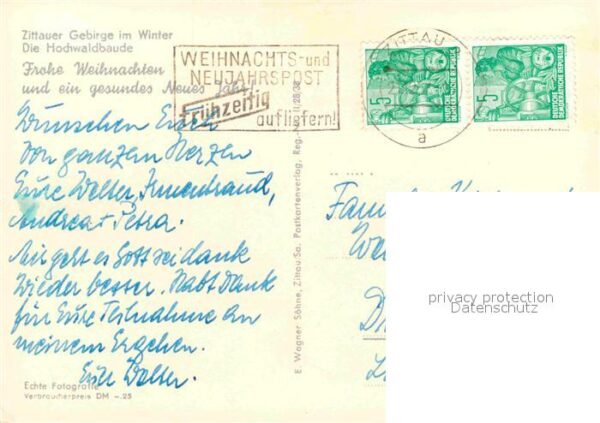 Zittauer Gebirge im Winter
Die Hochwaldbaude
Frohe Weihnachten
und ein gesundes Neues Jahr!
Wünschen Euch
von ganzem Herzen
Eure Walter, Irmentraud,
Andrea + Petra.
Mir geht es Gott sei dank
wieder besser. Habt Dank
für Eure Teilnahme an
meinem Ergehen.
Eure Walter.
Echte Fotografie
Verbraucherpreis DM -.25
E. Wagner Söhne, Zittau/Sa. Postkartenverlag, Reg.-
WEIHNACHTS- und
NEUJAHRSPOST
Frühzeitig
aufliefern!
ZITTAU
a
5
DEUTSCHE
DEMOKRATISCHE REPUBLIK
5
DEUTSCHE
DEMOKRATISCHE REPUBLIK
privacy protection
Datenschutz